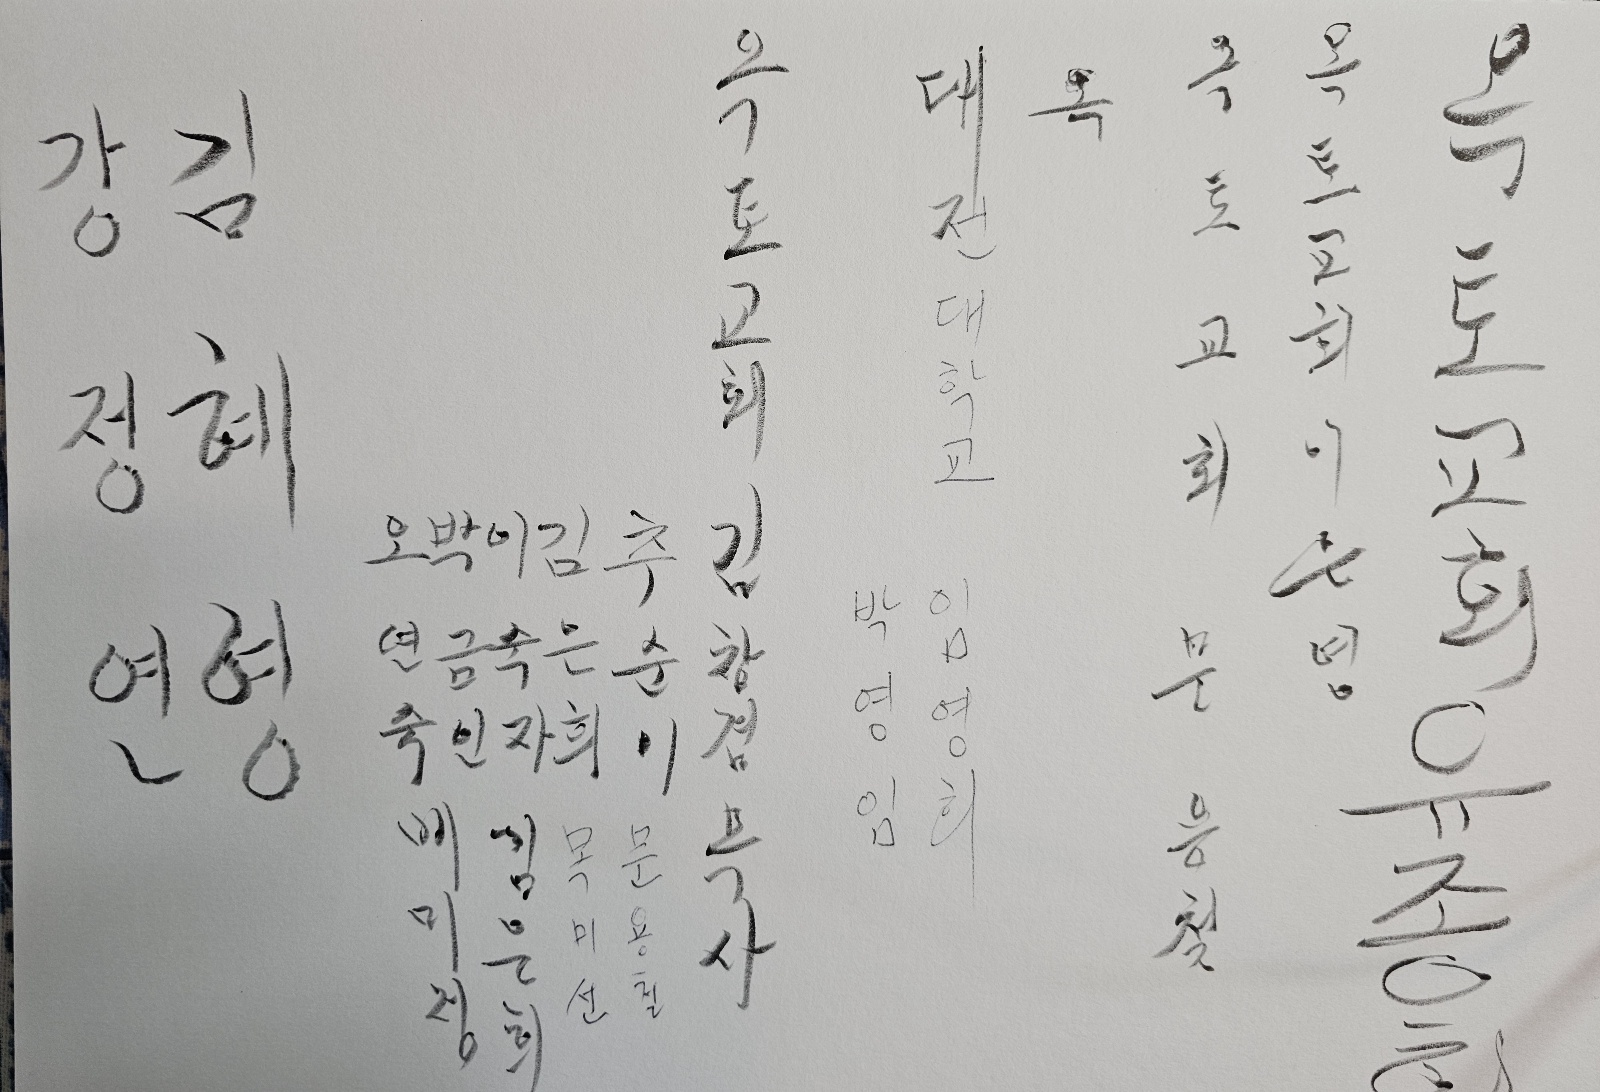 옥토교회 유종
옥토교회 이은명
옥토교회 문응철
옥
대전대학교 임영희
박영임
옥토교회 김창겸 목사
추순이
문용철
김은희
목미선
이숙자
심은희
박금인
오연숙
배미정
김혜령
강정연